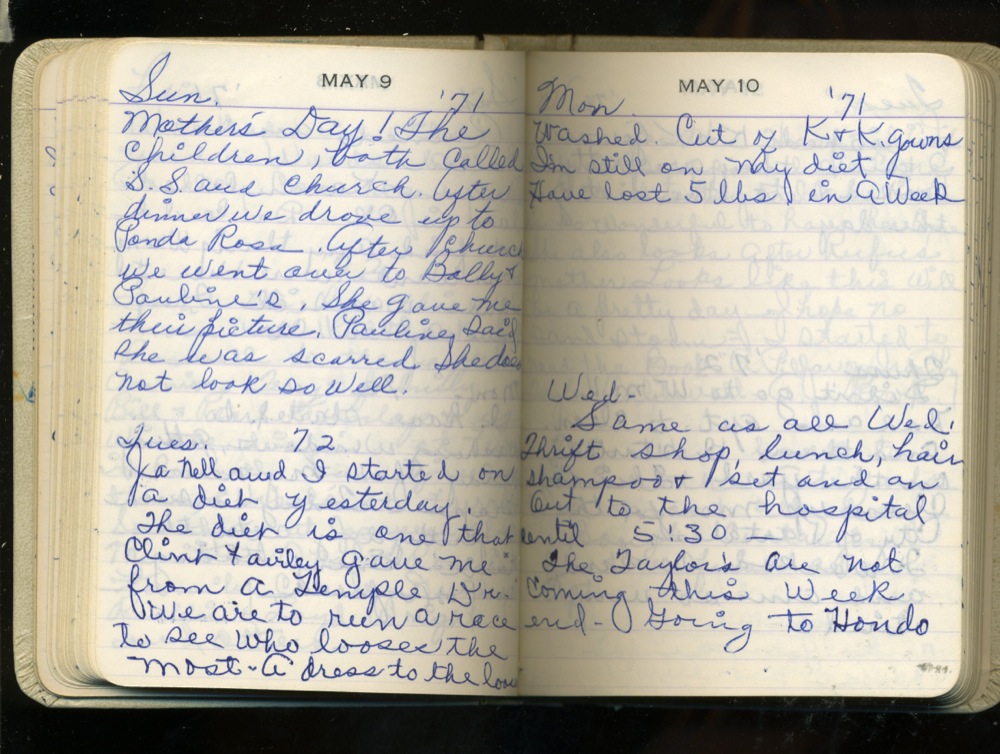 MAY 9
Sun. '71
Mother's Day! The
Children, both called
S. S. and Church. After
dinner we drove up to
Ponda Rosa. After Church
we went over to Bolly &
Pauline's. She gave me
their picture. Pauline said
she was scarred. She does
not look so well.
Tues. 72
Jo Nell and I started on
a diet yesterday.
The diet is one that
Clint & gave me
from a Temple Dr.
We are to run a race
to see who looses the
most - A dress to the
MAY 10
Mon. '71
Washed. Cut off K & K. gowns
I'm still on my diet
Have lost 5 lbs in a Week
Wed -
Same as all Wed.
Thrift shop, lunch, hair
shampoo & set and on
out to the hospital
until 5:30 -
The Taylors are not
coming this week
end - Going to Hondo